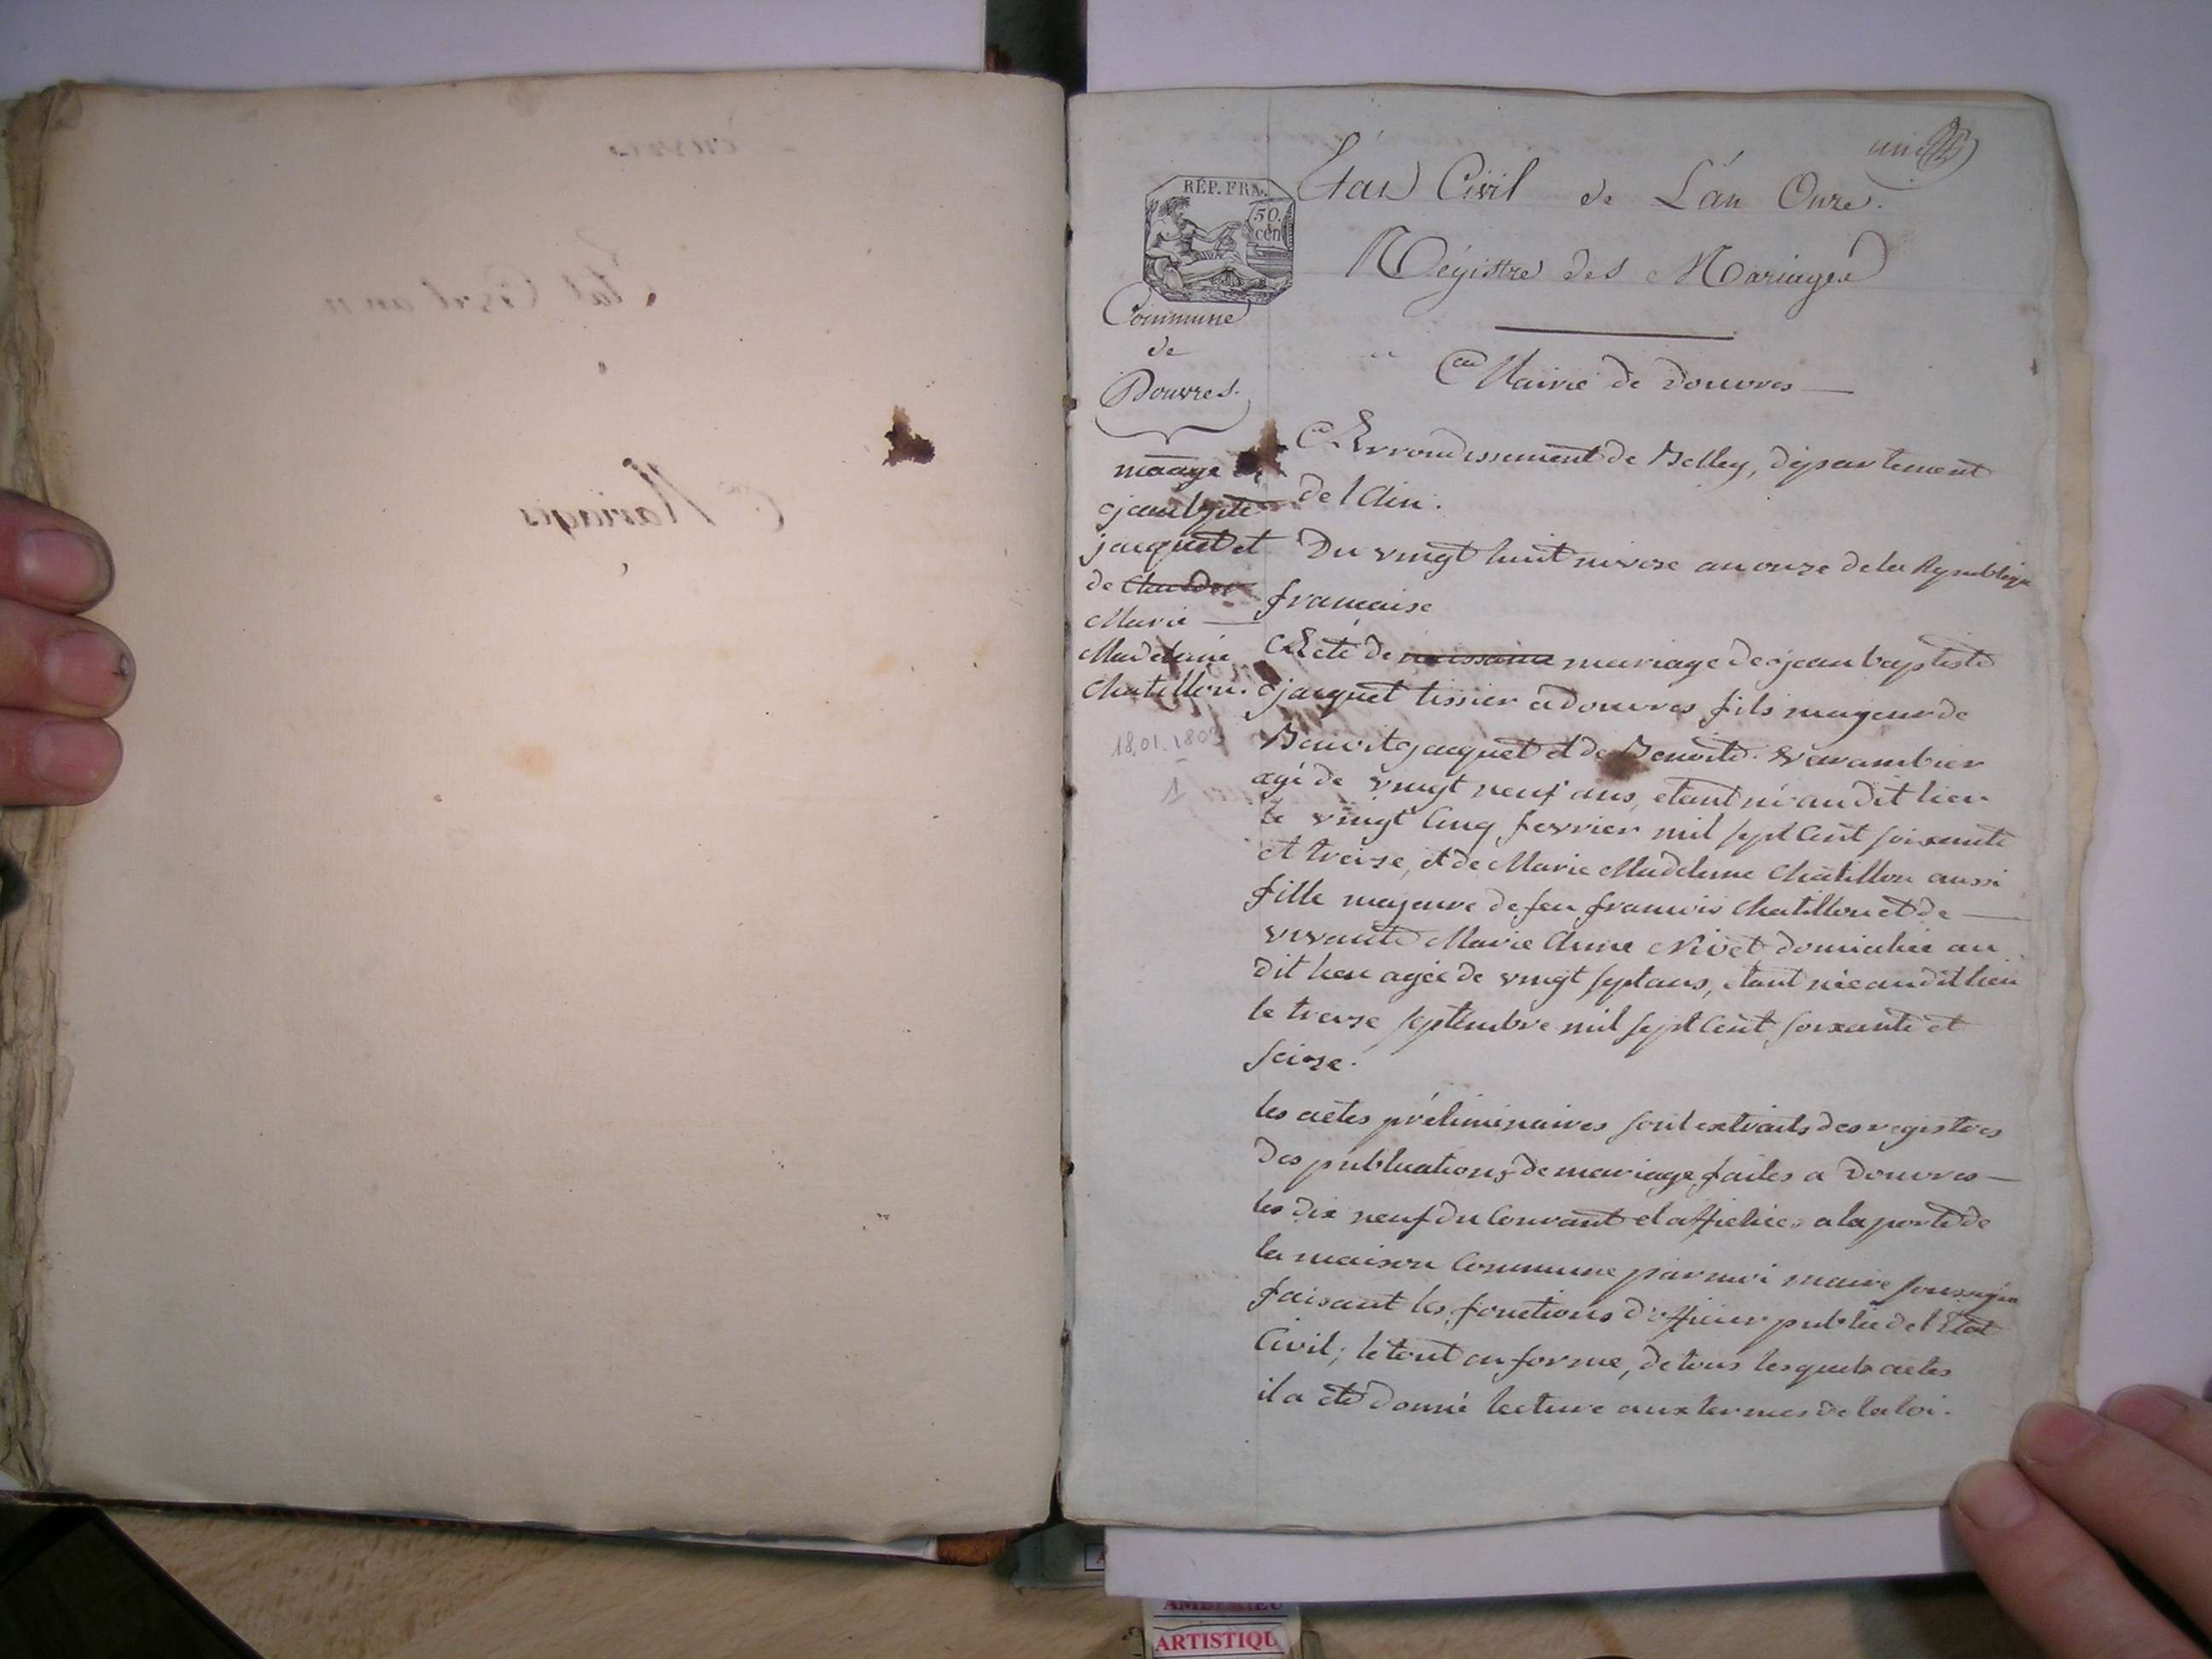 Etat Civil an 11
Mariages
un
RÉP. FRA.
50.
cen
Etat Civil de L'an Onze.
Régistre des Mariages
Commune
de
Douvres.
Mairie de Douvres
mariage de
jean bpte
jacquet et
de
Marie
Madelaine
Chatillon.
18.01.1803
1
Arrondissement de Belley, département
de l'Ain.
Du vingt huit nivose an onze de la Republique
française
Acte de naissance mariage de jean baptiste
jacquet tissier a douvres fils majeur de
Benoit jacquet et de Benoite Varambier
agé de vingt neuf ans, etant né au dit lieu
le vingt Cinq fevrier mil sept Cent soixante
et treize, et de Marie Madeleine Chatillon aussi
fille majeure de feu francois Chatillon et de
vivante Marie Anne Nivet domiciliée au
dit lieu agée de vingt sept ans, etant née au dit lieu
le treize septembre mil sept Cent soixante et
seize.
les actes préliminaires sont extraits des registres
des publications de mariage faites a Douvres
les dix neuf du Courant et affichées a la porte de
la maison Commune par moi maire soussigné
faisant les fonctions d'officier public de l'Etat
Civil; le tout en forme, de tous lesquels actes
il a eté donné lecture aux termes de la loi.
AMBERIEU
ARTISTIQU